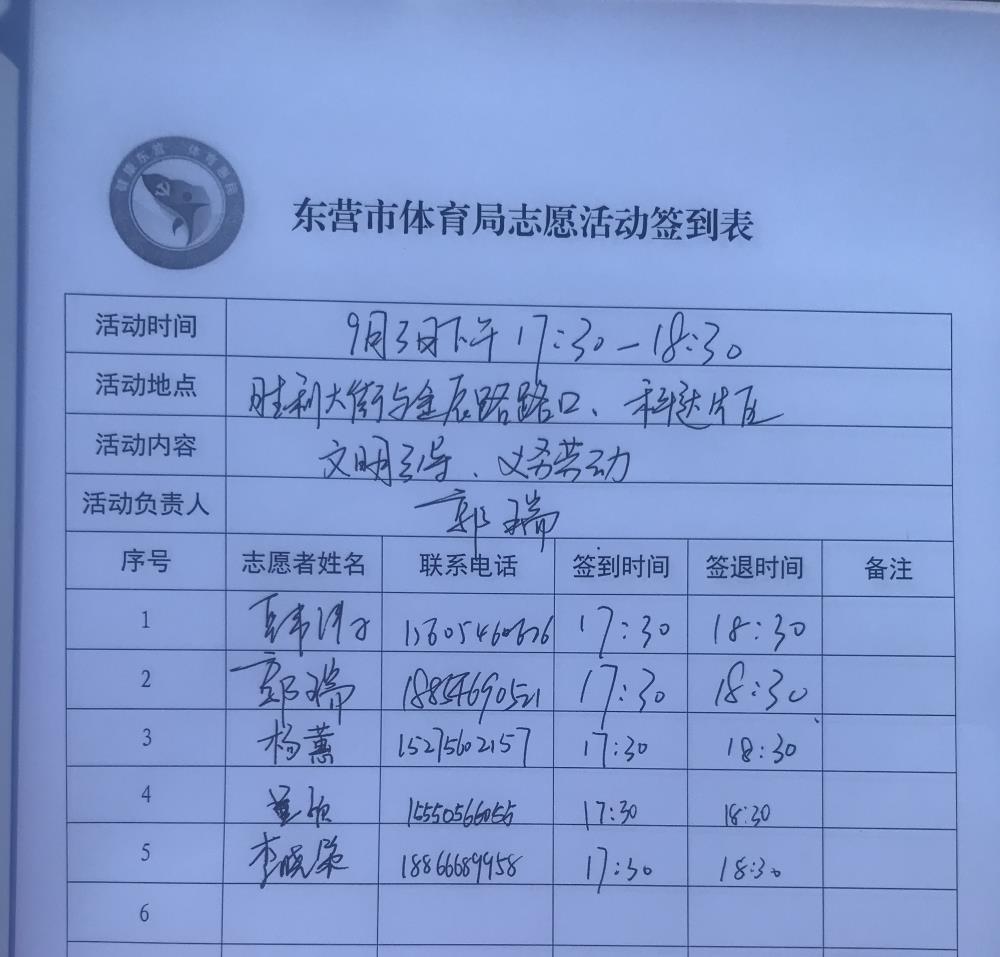 健康东营 体育惠民
东营市体育局志愿活动签到表
活动时间 9月3日下午17:30—18:30
活动地点 胜利大街与金辰路路口、科达片区
活动内容 文明引导、义务劳动
活动负责人 郭瑞
序号 志愿者姓名 联系电话 签到时间 签退时间 备注
1 17:30 18:30
2 郭瑞 18854690521 17:30 18:30
3 杨蕙 15275602157 17:30 18:30
4 15550566055 17:30 18:30
5 李晓荣 18866689958 17:30 18:30
6